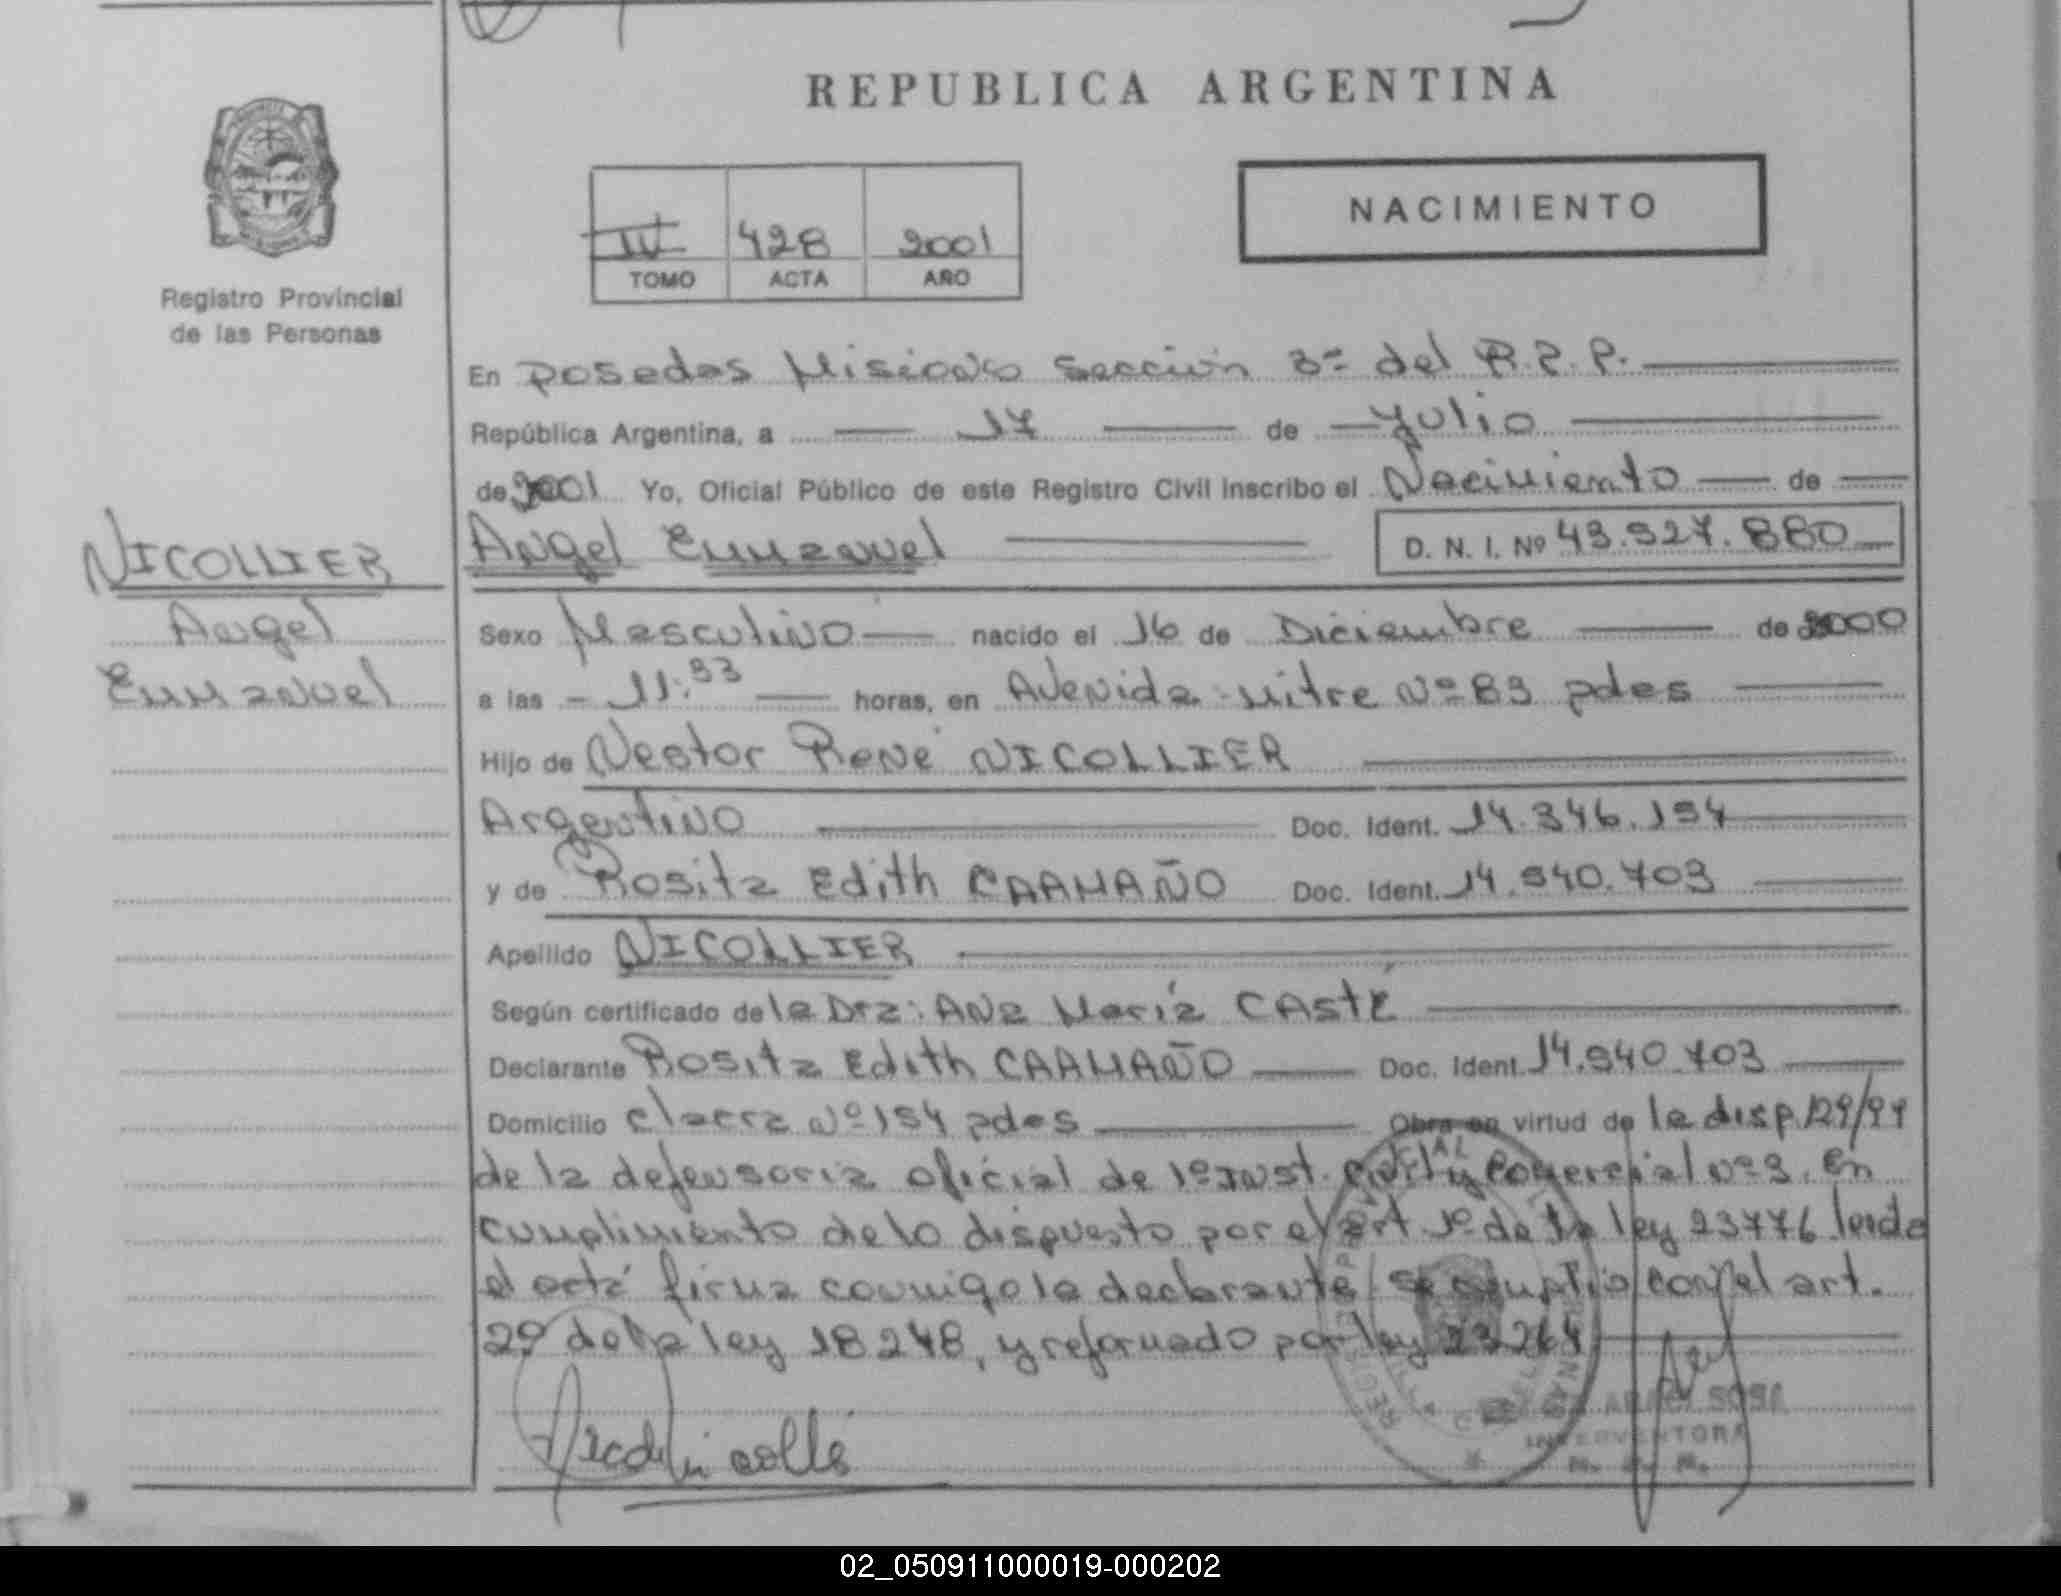 REPUBLICA ARGENTINA
NACIMIENTO
IV 428 2001
TOMO ACTA AÑO
Registro Provincial
de las Personas
En posadas Misiones sección 3ª del R.P.P.
República Argentina, a 17 de Julio
de 2001 Yo, Oficial Público de este Registro Civil inscribo el Nacimiento de
NICOLLIER
Angel
Emmanuel
Angel Emmanuel D. N. I. Nº 43.527.880
Sexo Masculino nacido el 16 de Diciembre de 2000
a las 11:33 horas, en Avenida mitre Nº 83 pdas
Hijo de Nestor René NICOLLIER
Argentino Doc. Ident. 14.346.154
y de Rosita Edith CAAMAÑO Doc. Ident. 14.540.703
Apellido NICOLLIER
Según certificado de la Dra: Ana María CASTÉ
Declarante Rosita Edith CAAMAÑO Doc. Ident. 14.540.703
Domicilio clacra Nº 154 pdas Obra en virtud de la disp. 129/99
de la defensoria oficial de 1º Inst. civil y comercial nº 3. En
cumplimiento de lo dispuesto por el art 1º de la ley 23776 leida
el acta firma conmigo la declarante se cumplio con el art.
2º de la ley 18248, y reformado por ley 23264
SOSA
INTERVENTORA
02_050911000019-000202